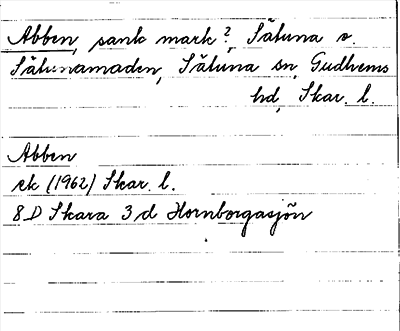 Abben, sank mark?, Sätuna o.
Sätunamaden, Sätuna sn, Gudhems
hd, Skar. l.
Abben
ek (1962) Skar. l.
8D Skara 3d Hornborgasjön